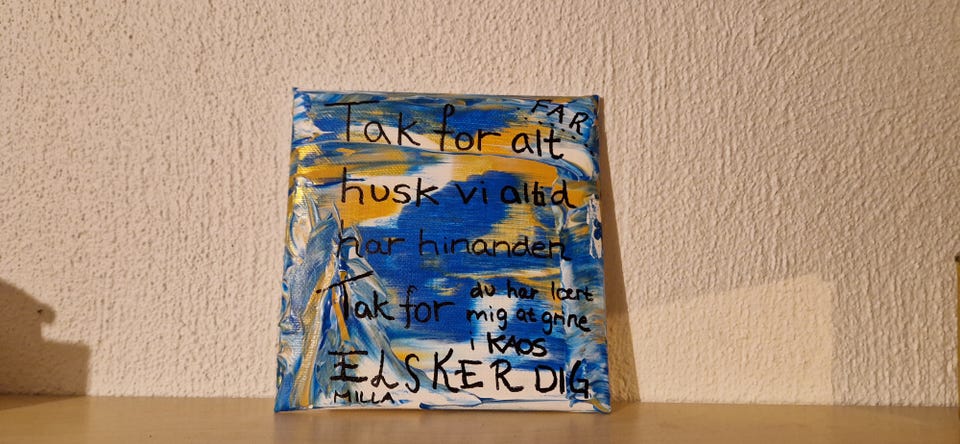 FAR
Tak for alt
husk vi altid
har hinanden
Tak for du har lært
mig at grine
i KAOS
ELSKER DIG
MILLA